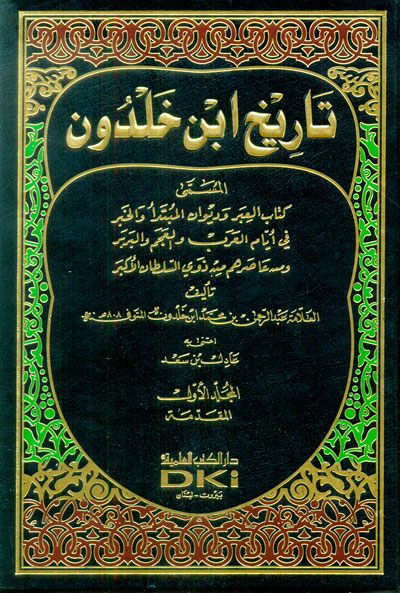 تاريخ ابن خلدون
المسمى
كتاب العبر وديوان المبتدأ والخبر
في أيام العرب والعجم والبربر
ومن عاصرهم من ذوي السلطان الأكبر
تأليف
العلامة عبد الرحمن بن محمد ابن خلدون المتوفى ٨٠٨ هـ
اعتنى به
عادل بن سعد
المجلد الأول
المقدمة
دار الكتب العلمية
DKi
بيروت - لبنان